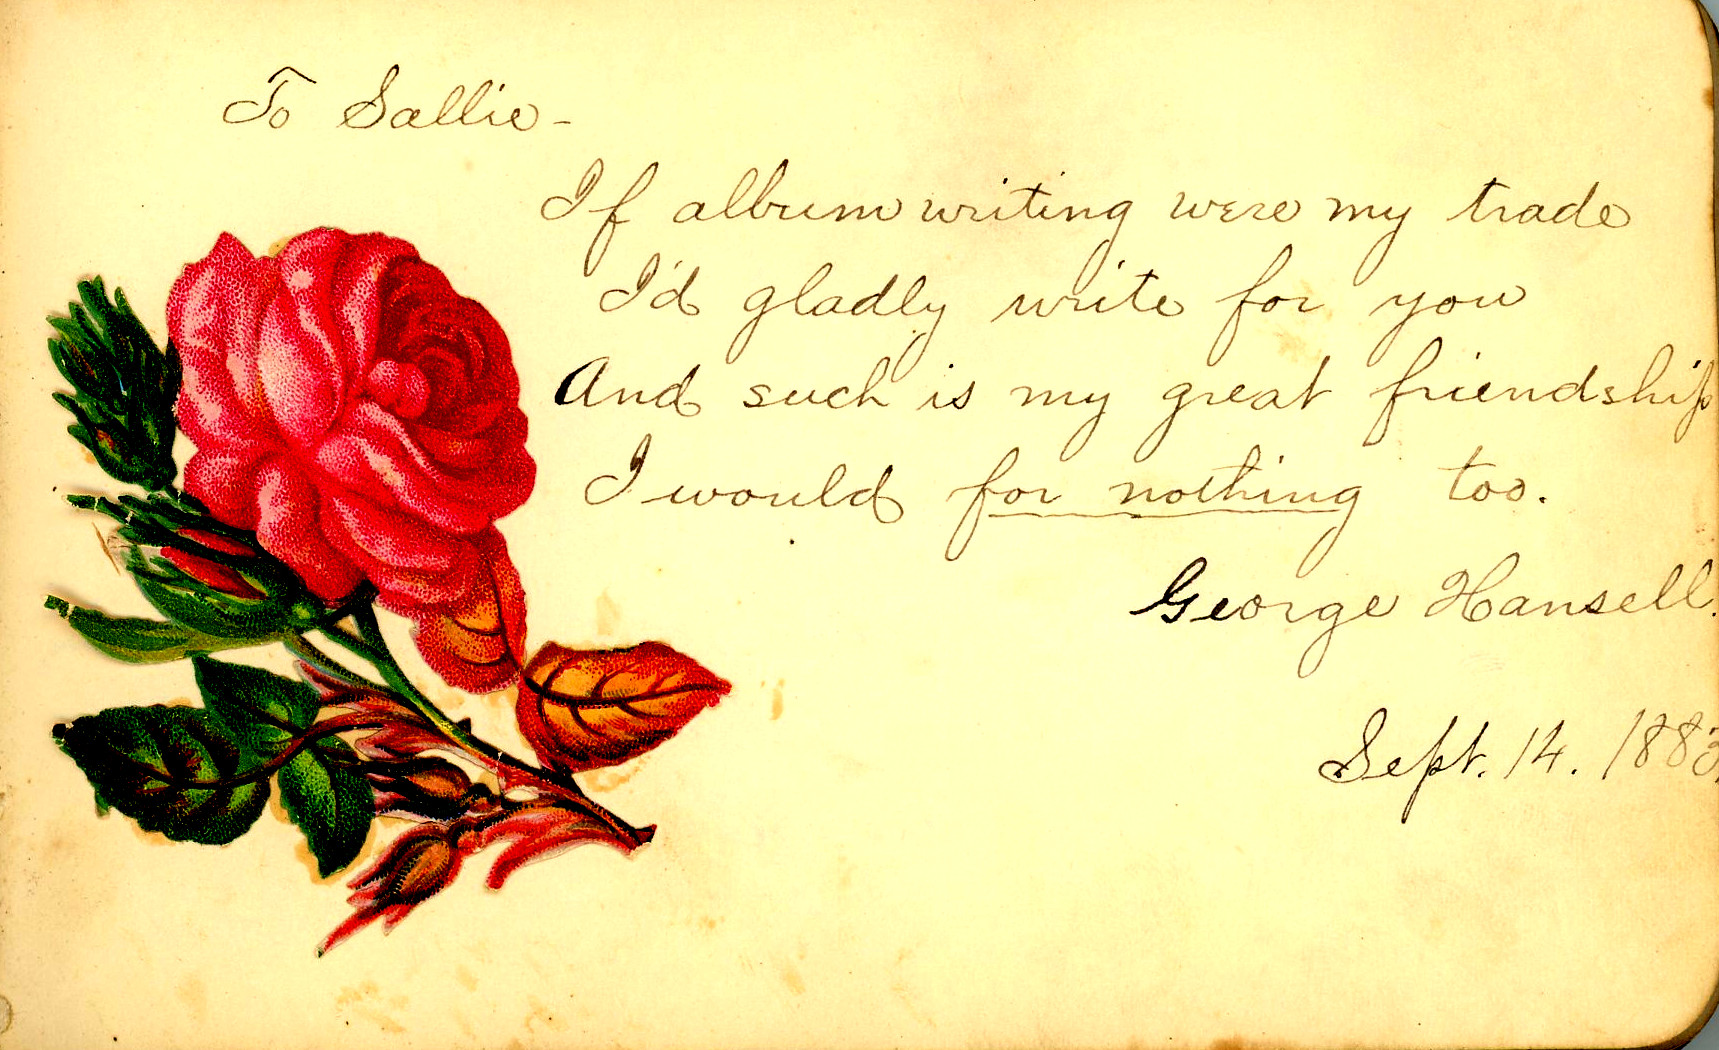 To Sallie-
If album writing were my trade
I'd gladly write for you
And such is my great friendship
I would for nothing too.
George Hansell.
Sept. 14. 1883